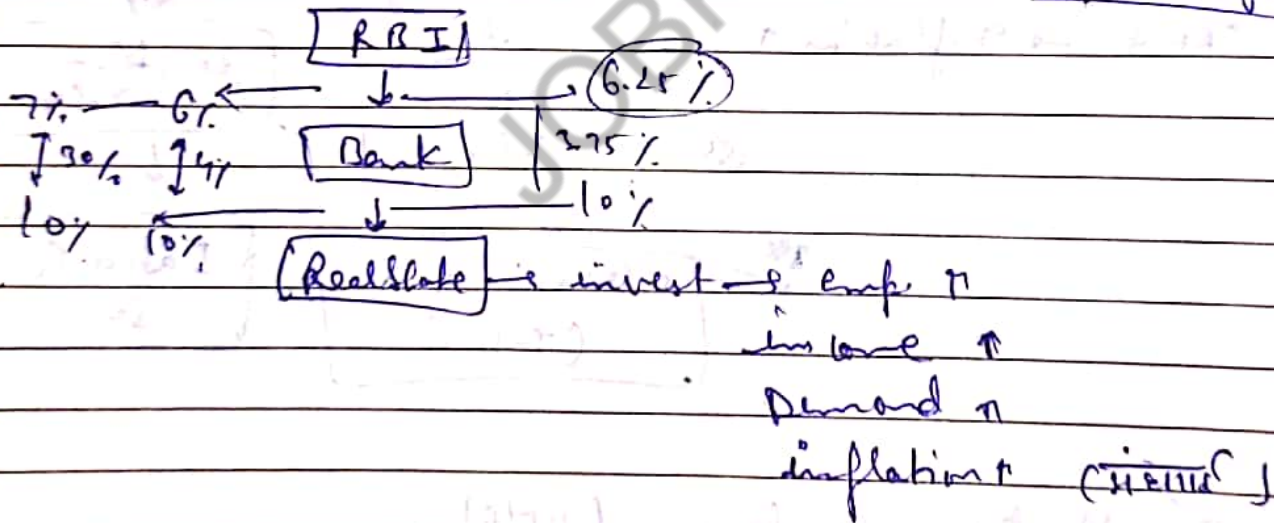 RBI
6.25%
7% — 6%
30% 4% Bank 3.75%
10% 10% 10%
RealState → invest → emp. ↑
income ↑
Demand ↑
inflation ↑
JOB